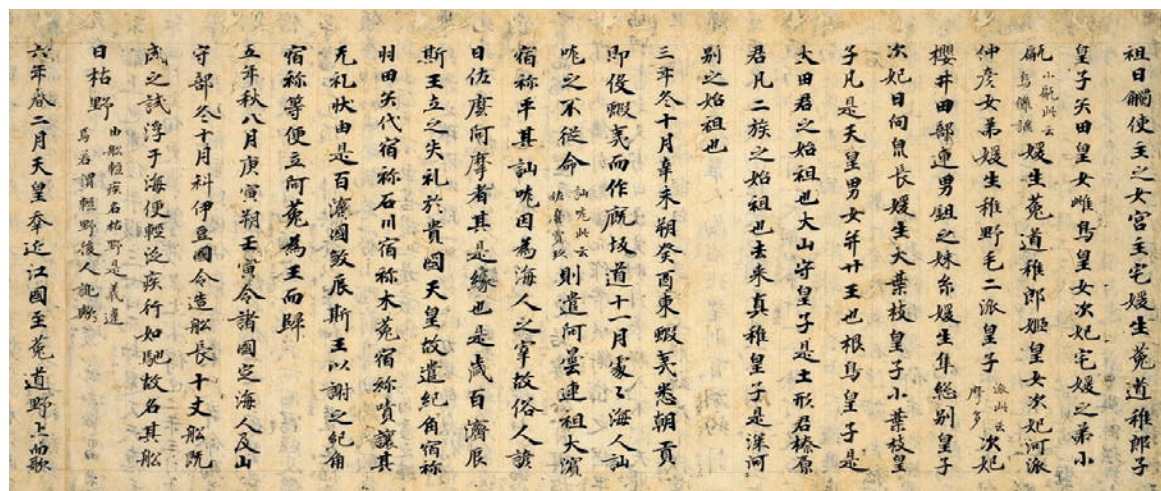 祖日觸使主之女宮主宅媛生菟道稚郎子
皇子矢田皇女雌鳥皇女次妃宅媛之弟小
甂小甂此云烏儺謎媛生菟道稚郎姫皇女次妃河派
仲彦女弟媛生稚野毛二派皇子派此云摩多次妃
櫻井田部連男鉏之妹糸媛生隼総別皇子
次妃日向泉長媛生大葉枝皇子小葉枝皇
子凡是天皇男女并廿王也根鳥皇子是
大田君之始祖也大山守皇子是土形君榛原
君凡二族之始祖也去来真稚皇子是深河
別之始祖也
三年冬十月辛未朔癸酉東蝦夷悉朝貢
即役蝦夷而作厩坂道十一月處々海人訕
哤之不從命訕哤此云佐麼賣玖則遣阿曇連祖大濱
宿祢平其訕哤因為海人之宰故俗人諺
曰佐麼阿摩者其是縁也是歳百濟辰
斯王立之失礼於貴國天皇故遣紀角宿祢
羽田矢代宿祢石川宿祢木菟宿祢嘖讓其
无礼状由是百濟國殺辰斯王以謝之紀角
宿祢等便立阿菟為王而歸
五年秋八月庚寅朔壬寅令諸國定海人及山
守部冬十月科伊豆國令造舩長十丈舩既
成之試浮于海便輕泛疾行如馳故名其舩
曰枯野由舩輕疾名枯野是義違焉若謂輕野後人訛歟
六年春二月天皇幸近江國至菟道野上而歌